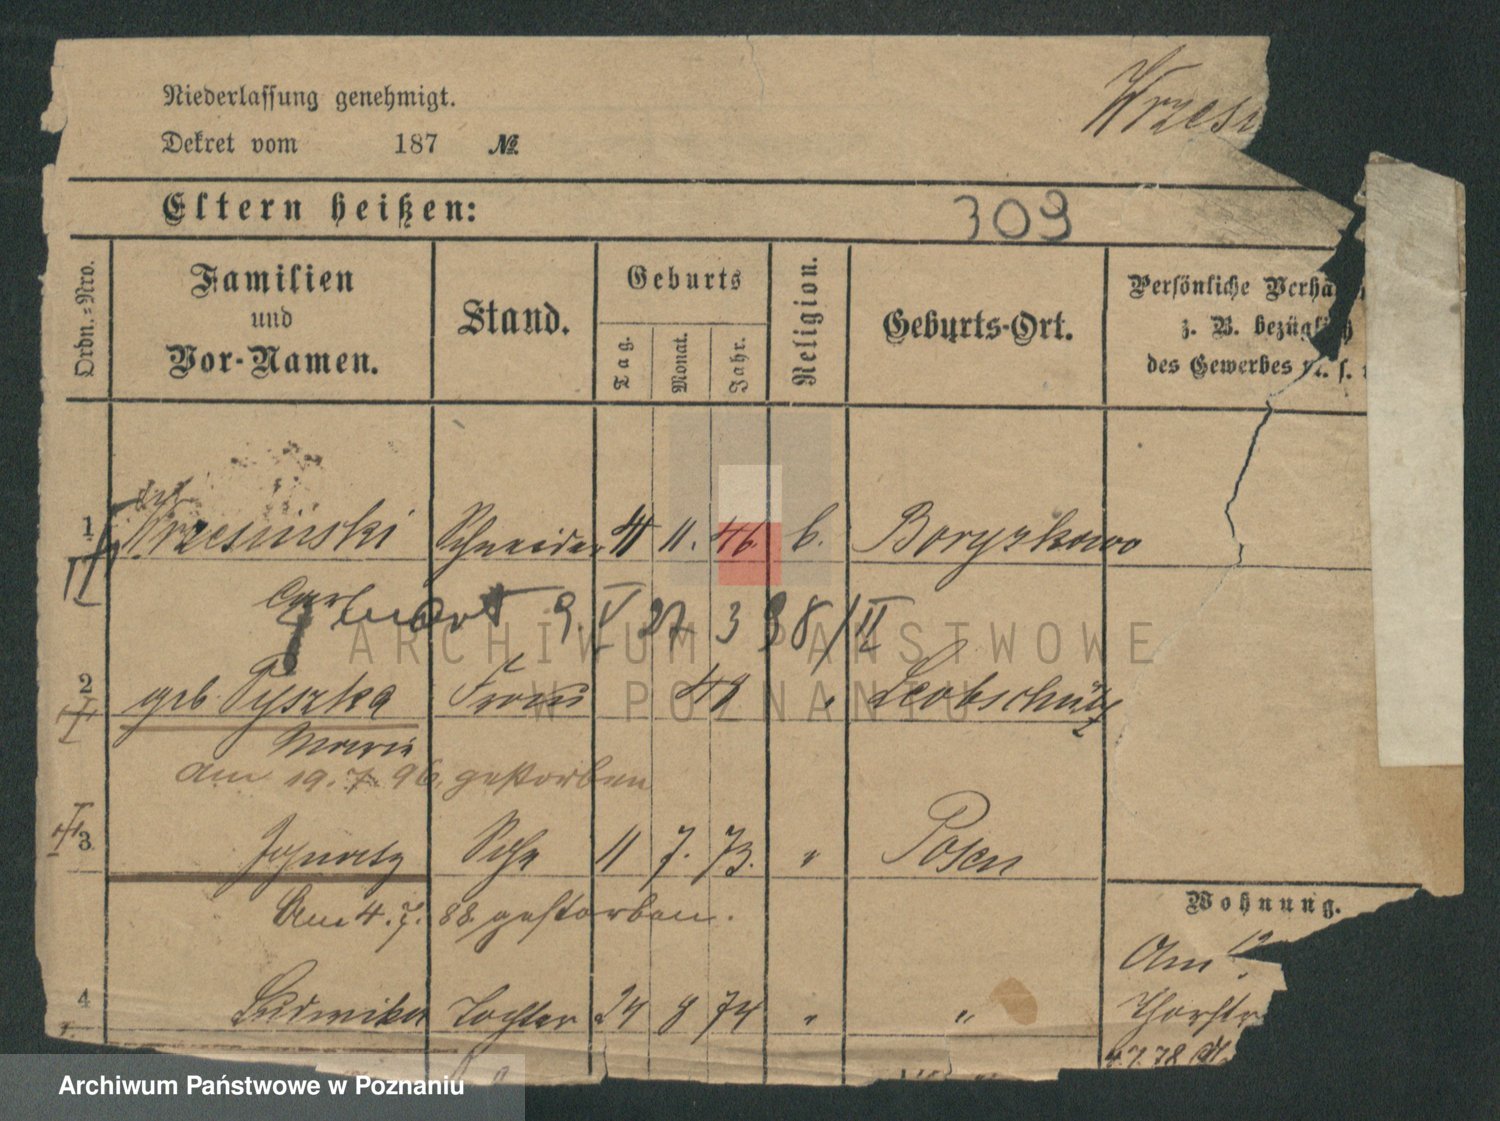 Niederlassung genehmigt.
Wrzesi
Dekret vom 187 №
Eltern heißen:
309
Ordn.-Nro.
Familien und Vor-Namen.
Stand.
Geburts
Tag.
Monat.
Jahr.
Religion.
Geburts-Ort.
Persönliche Verhä
z. B. bezüglich
des Gewerbes u. s.
1 Wrzesinski Schneider 4 11. 46. k. Boryszkowo
Carl
9. V 27 3 98/II
2 geb Pyszka Frau 48 " Leobschütz
Marie
am 19. 7. 96. gestorben
3 Ignatz Sohn 11 7. 73. " Posen
Am 4. 7. 88. gestorben.
Wohnung.
Am
4 Ludwika Tochter 24 8 74 " "
Thorstr
4.7.78
ARCHIWUM PAŃSTWOWE
W POZNANIU
Archiwum Państwowe w Poznaniu